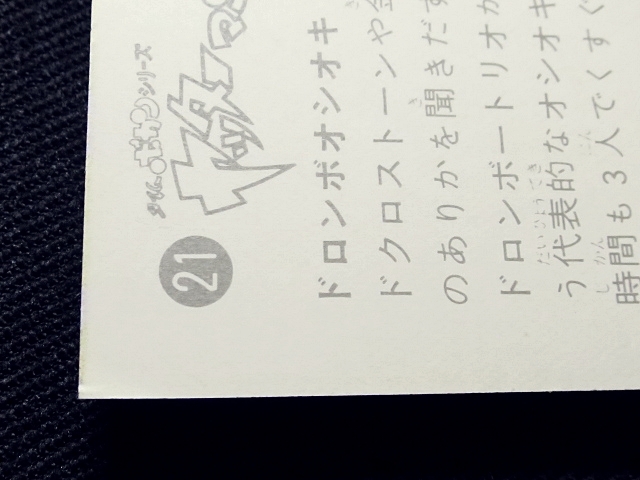 タイムボカンシリーズ
ヤッターマン
21
ドロンボオシオキ
ドクロストーンや金
のありかを聞きだす
ドロンボートリオが
う代表的なオシオキ
時間も3人でくすぐ